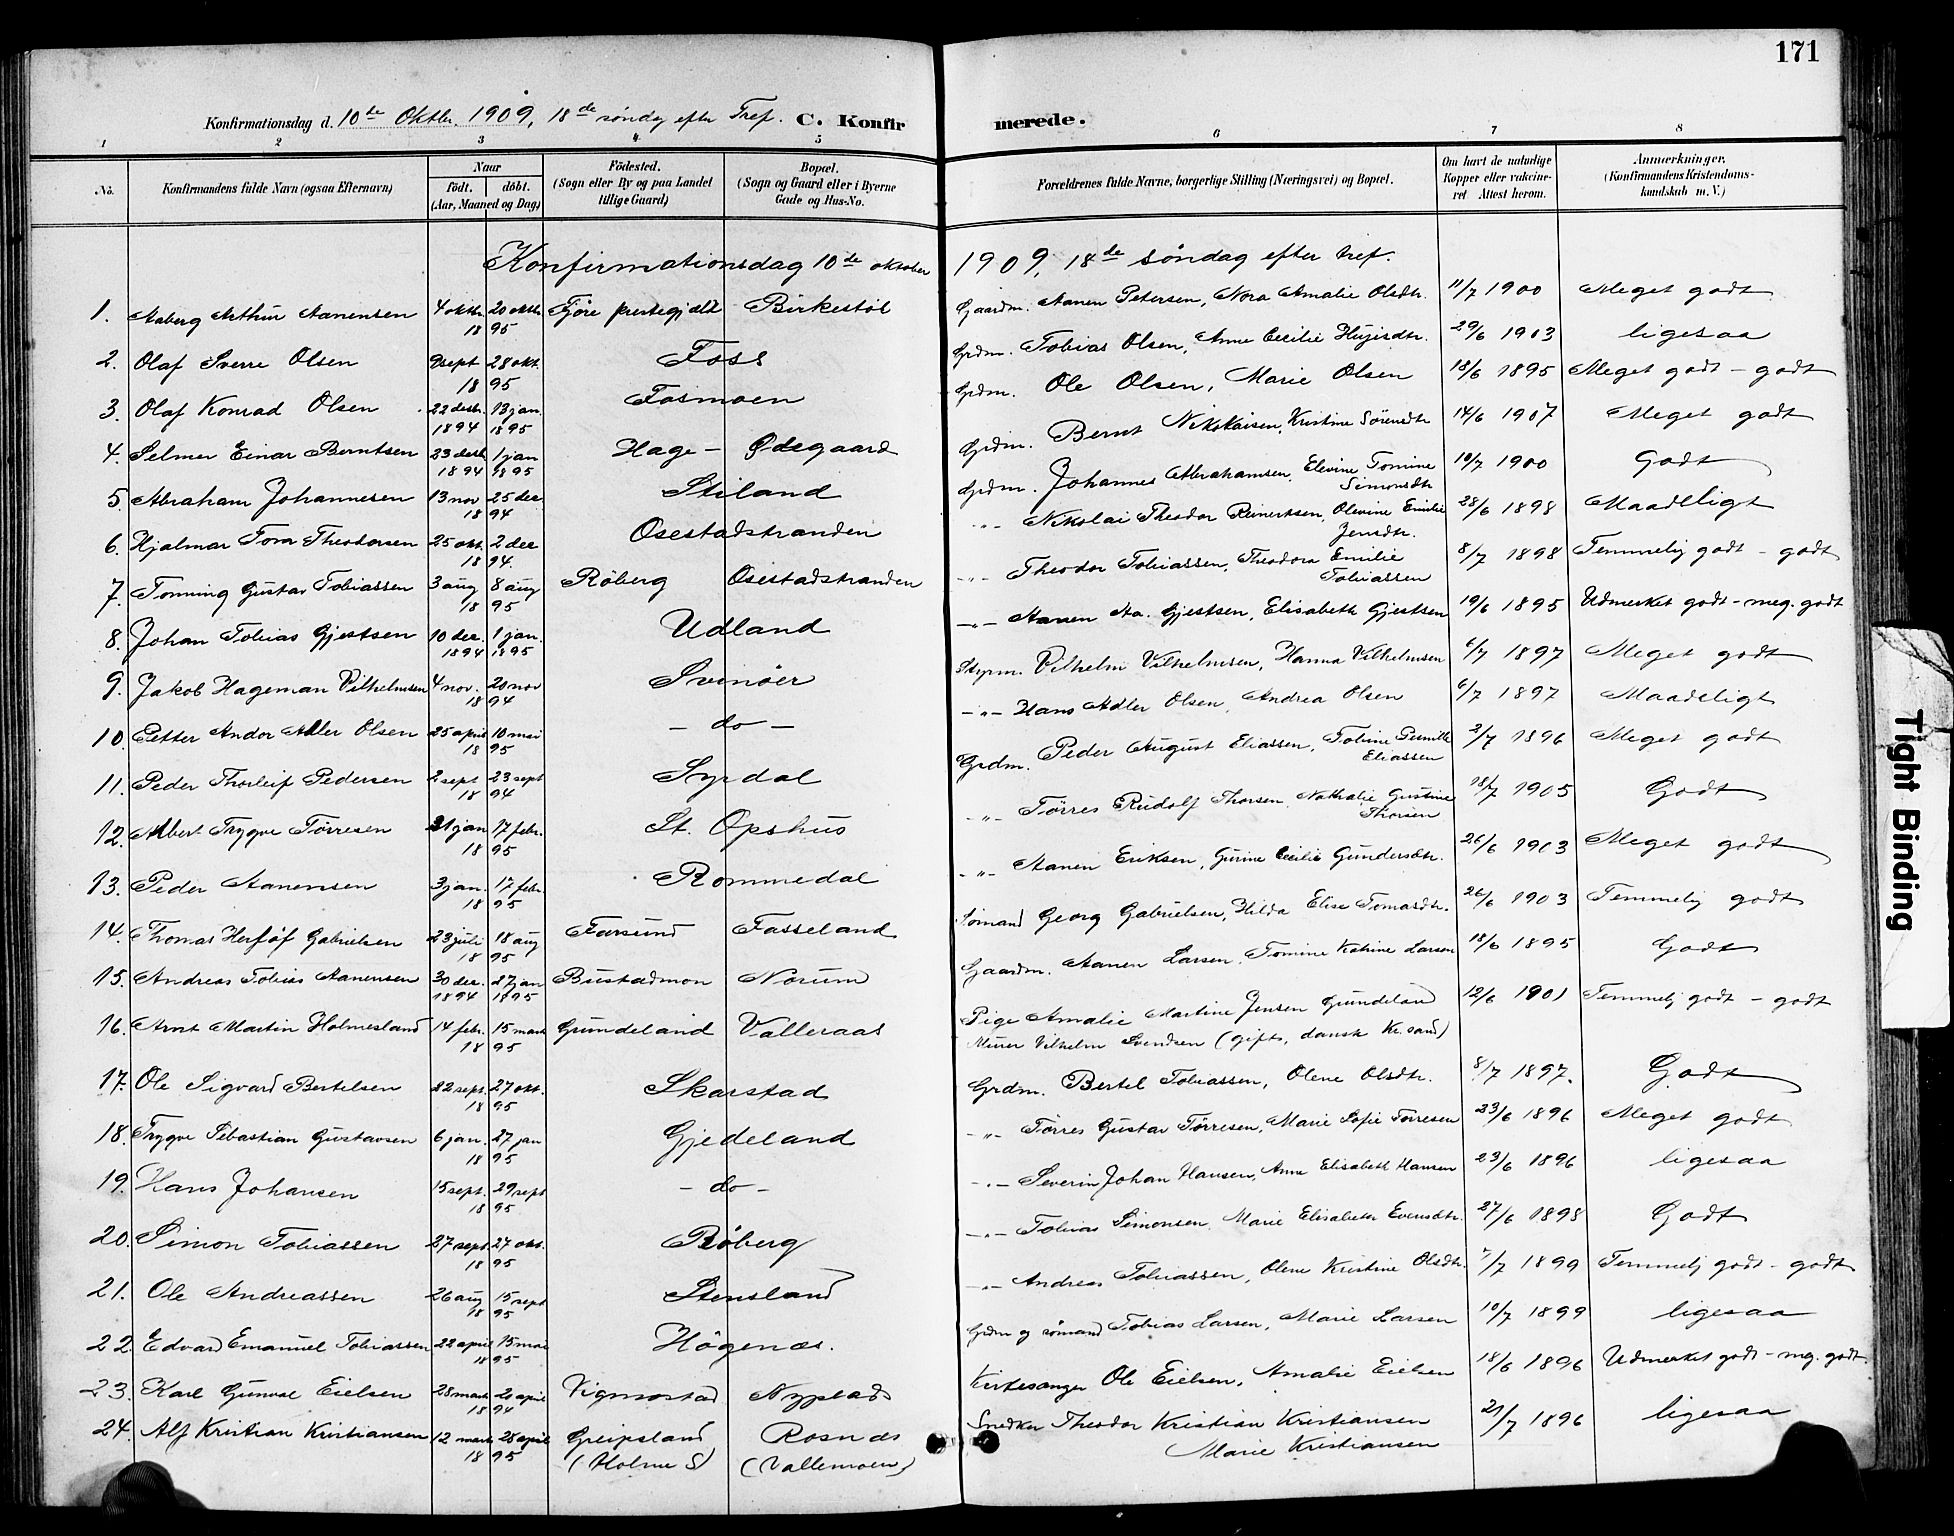 171
Konfirmationsdag d. 10de Oktbr. 1909, 18de søndag efter Tref. C. Konfirmerede.
1 2 3 4 5 6 7 8
No. Konfirmandens fulde Navn (ogsaa Efternavn) Naar født. døbt. (Aar, Maaned og Dag) Födested. (Sogn eller By og paa Landet tillige Gaard) Bopæl. (Sogn og Gaard eller i Byerne Gade og Hus-No. Forældrenes fulde Navne, borgerlige Stilling (Næringsvei) og Bopæl. Om havt de naturlige Kopper eller vakcineret Attest herom. Anmærkninger. (Konfirmandens Kristendomskundskab m. V.)
Konfirmationsdag 10de oktober 1909, 18de søndag efter tref.
1. Aaberg Arthur Aanensen 4 oktbr. 20 oktbr. 1895 Fjøre prestegjeld Birkestøl Gaardm. Aanen Petersen, Nora Amalie Olsdtr. 11/7 1900 Meget godt
2. Olaf Sverre Olsen 9 sept 28 okt. 1895 Foss Grdm. Tobias Olsen, Anne Cecilie 29/6 1903 ligesaa
3. Olaf Konrad Olsen 22 desbr. 1894 13 jan. 1895 Fosmoen Grdm. Ole Olsen, Marie Olsen 18/6 1895 Meget godt - godt
4. Selmer Einar Berntsen 23 desb. 1894 1 jan 1895 Hage - Ødegaard Grdm. Bernt Nikolaisen, Kristine Sørensdtr 14/6 1907 Meget godt
5. Abraham Johannesen 13 nov 25 dec 1894 Stiland Grdm. Johannes Abrahamsen, Elevine Tomine Simonsdtr 10/7 1900 Godt
6. Hjalmar Tom Theodorsen 25 okt. 2 dec 1894. Osestadstranden -"- Nikolai Theodor Reinertsen, Olevine Emilie Jensdtr. 28/6 1898 Maadeligt
7. Tonning Gustav Tobiassen 3 aug 8 aug 1895 Röberg Osestadstranden -"- Theodor Tobiassen, Theodora Emilie Tobiassen 8/7 1898 Temmelig godt - godt
8. Johan Tobias Gjertsen 10 dec. 1894 1 jan. 1895 Udland -"- Aanen Aa. Gjertsen, Elisabeth Gjertsen 19/6 1895 Udmerket godt - meg. godt
9. Jakob Hageman Vilhelmsen 4 nov. 20 nov 1894 Svinöer Skprm. Vilhelm Vilhelmsen, Hanna Vilhelmsen 6/7 1897 Meget godt
10. Petter Andor Adler Olsen 25 april 10 mai 1895 - do - -"- Hans Adler Olsen, Andrea Olsen 6/7 1897 Maadeligt
11. Peder Thorleif Pedersen 2 sept 23 sept 1894 Syrdal Grdm. Peder August Eliassen, Tobine Pernille Eliassen 2/7 1896 Meget godt
12. Albert Trygve Tørresen 31 jan 17 febr. 1895 St. Opshus -"- Tørres Rudolf Thorsen, Nathalie Gustine Thorsen 18/7 1905 Godt
13. Peder Aanensen 3 jan. 17 febr. 1895 Rommedal -"- Aanen Eriksen, Gurine Cecilie Gundersdtr. 26/6 1903 Meget godt
14. Thomas Herlöf Gabrielsen 23 juli 18 aug 1895 Farsund Fasseland Sømand Georg Gabrielsen, Hilda Elise Tomasdtr. 26/6 1903 Temmelig godt
15. Andreas Tobias Aanensen 30 dec. 1894 27 jan 1895 Bustadmon Norum Gaardm. Aanen Larsen, Tomine Katrine Larsen 18/6 1895 Godt
16. Arnt Martin Holmesland 14 febr. 15 marts 1895 Gundeland Valleraas Pige Amalie Martine Jensen Gundeland 12/6 1901 Temmelig godt - godt
Murer Vilhelm Svendsen (gift, dansk Kr.sand)
17. Ole Sigvard Bertelsen 22 sept. 27 okt. 1895 Skarstad Grdm. Bertel Tobiassen, Olene Olsdtr. 8/7 1897. Godt
18. Trygve Sebastian Gustavsen 6 jan. 27 jan 1895 Gjedeland -"- Tørres Gustav Tørresen, Marie Sofie Tørresen 23/6 1896 Meget godt
19. Hans Johansen 15 sept. 29 sept 1895 - do - -"- Severin Johan Hansen, Anne Elisabeth Hansen 23/6 1896 ligesaa
20. Simon Tobiassen 27 sept. 27 okt. 1895 Röberg -"- Tobias Simonsen, Marie Elisabeth Evensdtr. 27/6 1898 Godt
21. Ole Andreassen 26 aug 15 sept 1895 Stensland -"- Andreas Tobiassen, Olene Kristine Olsdtr. 7/7 1899 Temmelig godt - godt
22. Edvard Emanuel Tobiassen 22 april 15 mai 1895 Högenæs. Grdm og sømand Tobias Larsen, Marie Larsen 10/7 1899 ligesaa
23. Karl Gunval Eielsen 28 marts 20 april 1894 Vigmostad Nyplads Kirkesanger Ole Eielsen, Amalie Eielsen 18/6 1896 Udmerket godt - mg. godt
24. Alf Kristian Kristiansen 12 marts 28 april 1895 Greipsland (Holme S) Rosnæs (Vallemoen) Snedker Theodor Kristian Kristiansen 21/7 1896 ligesaa
Marie Kristiansen
Tight Binding